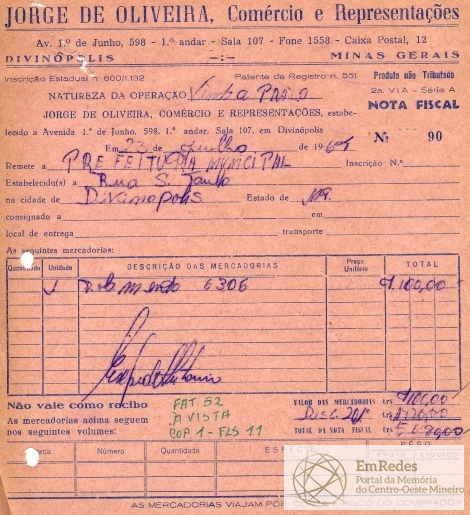 JORGE DE OLIVEIRA, Comércio e Representações
Av. 1.º de Junho, 598 - 1.º andar - Sala 107 - Fone 1558 - Caixa Postal, 12
DIVINÓPOLIS —:— MINAS GERAIS
Inscrição Estadual n. 800/1.132 Patente de Registro n. 551 Produto não Tributado
2a. VIA - Série A
NATUREZA DA OPERAÇÃO Venda NOTA FISCAL
JORGE DE OLIVEIRA, COMÉRCIO E REPRESENTAÇÕES, estabe-
lecido a Avenida 1.º de Junho, 598, 1.º andar, Sala 107, em Divinópolis
Em 23 de Julho de 196 Nº 90
Remete a PREFEITURA MUNICIPAL Inscrição N.º
Estabelecido(s) a Rua S. Paulo
na cidade de Divinopolis Estado de MG.
consignado a em
local de entrega transporte
As seguintes mercadorias:
Quantidade Unidade DESCRIÇÃO DAS MERCADORIAS Preço Unitário TOTAL
1 Rolamento 6306
Não vale como recibo FAT. 52 VALOR DAS MERCADORIAS Cr$
As mercadorias acima seguem A VISTA Desc. 20%
nos seguintes volumes: COP 1 - FLS 11 TOTAL DA NOTA FISCAL Cr$
Marca Número Quantidade ESPÉCIE PESO
BRUTO LIQUIDO
EmRedes
Portal da Memória
do Centro-Oeste Mineiro
AS MERCADORIAS VIAJAM POR CONTA E RISCO DO COMPRADOR